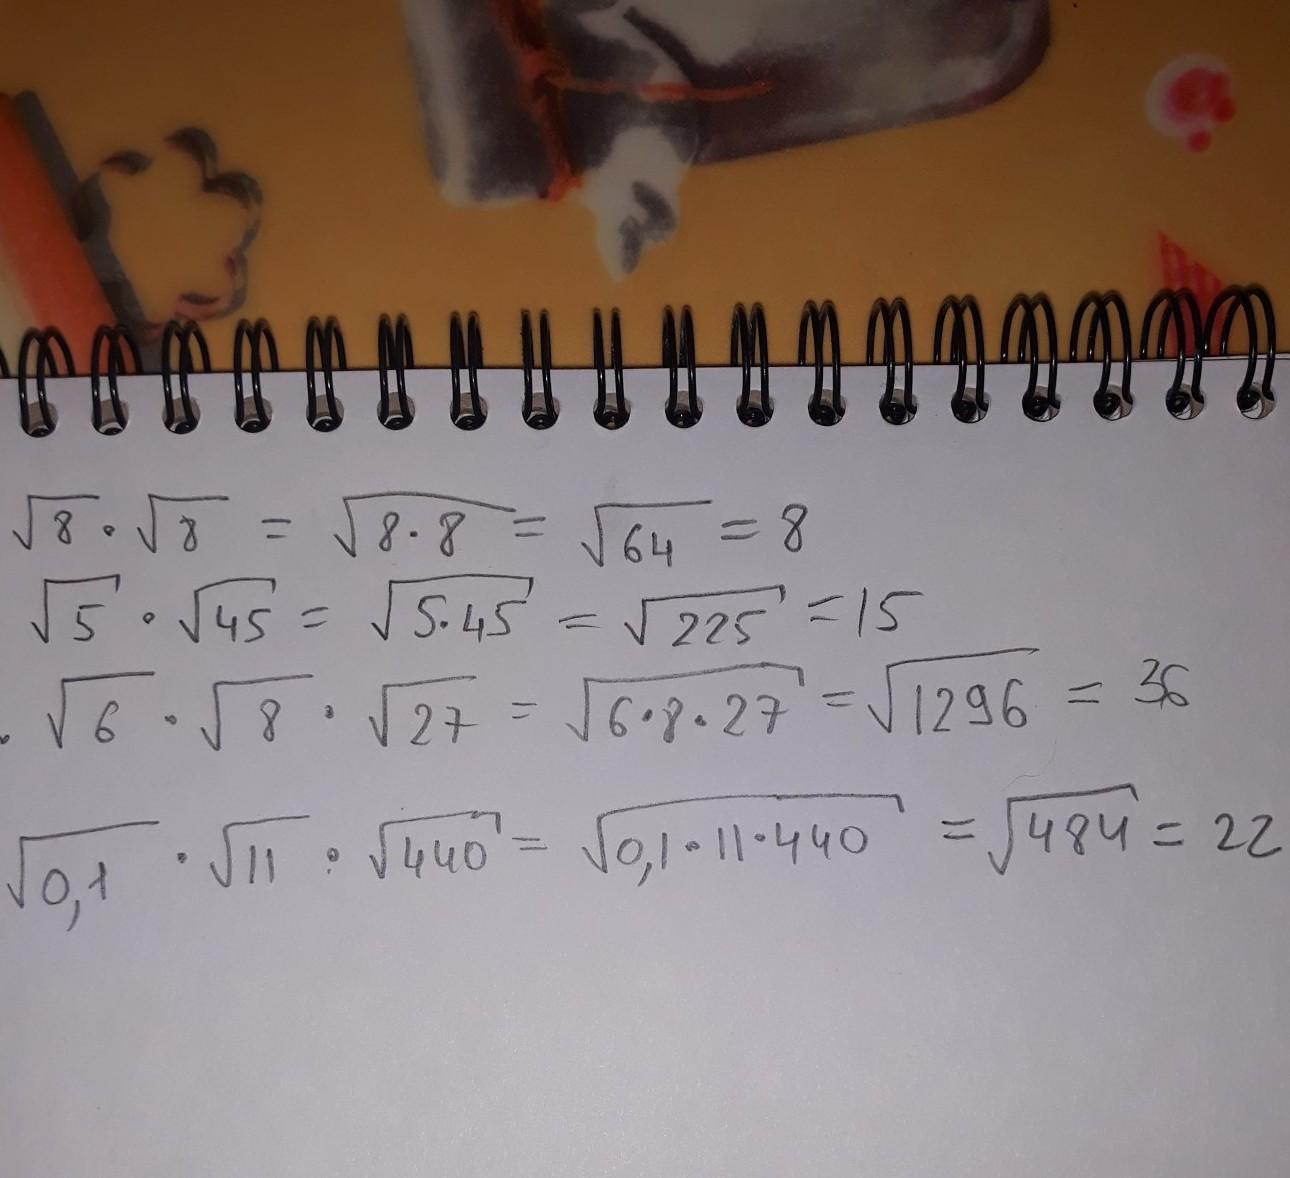 √8 · √8 = √8·8 = √64 = 8
√5 · √45 = √5·45 = √225 = 15
√6 · √8 · √27 = √6·8·27 = √1296 = 36
√0,1 · √11 · √440 = √0,1·11·440 = √484 = 22